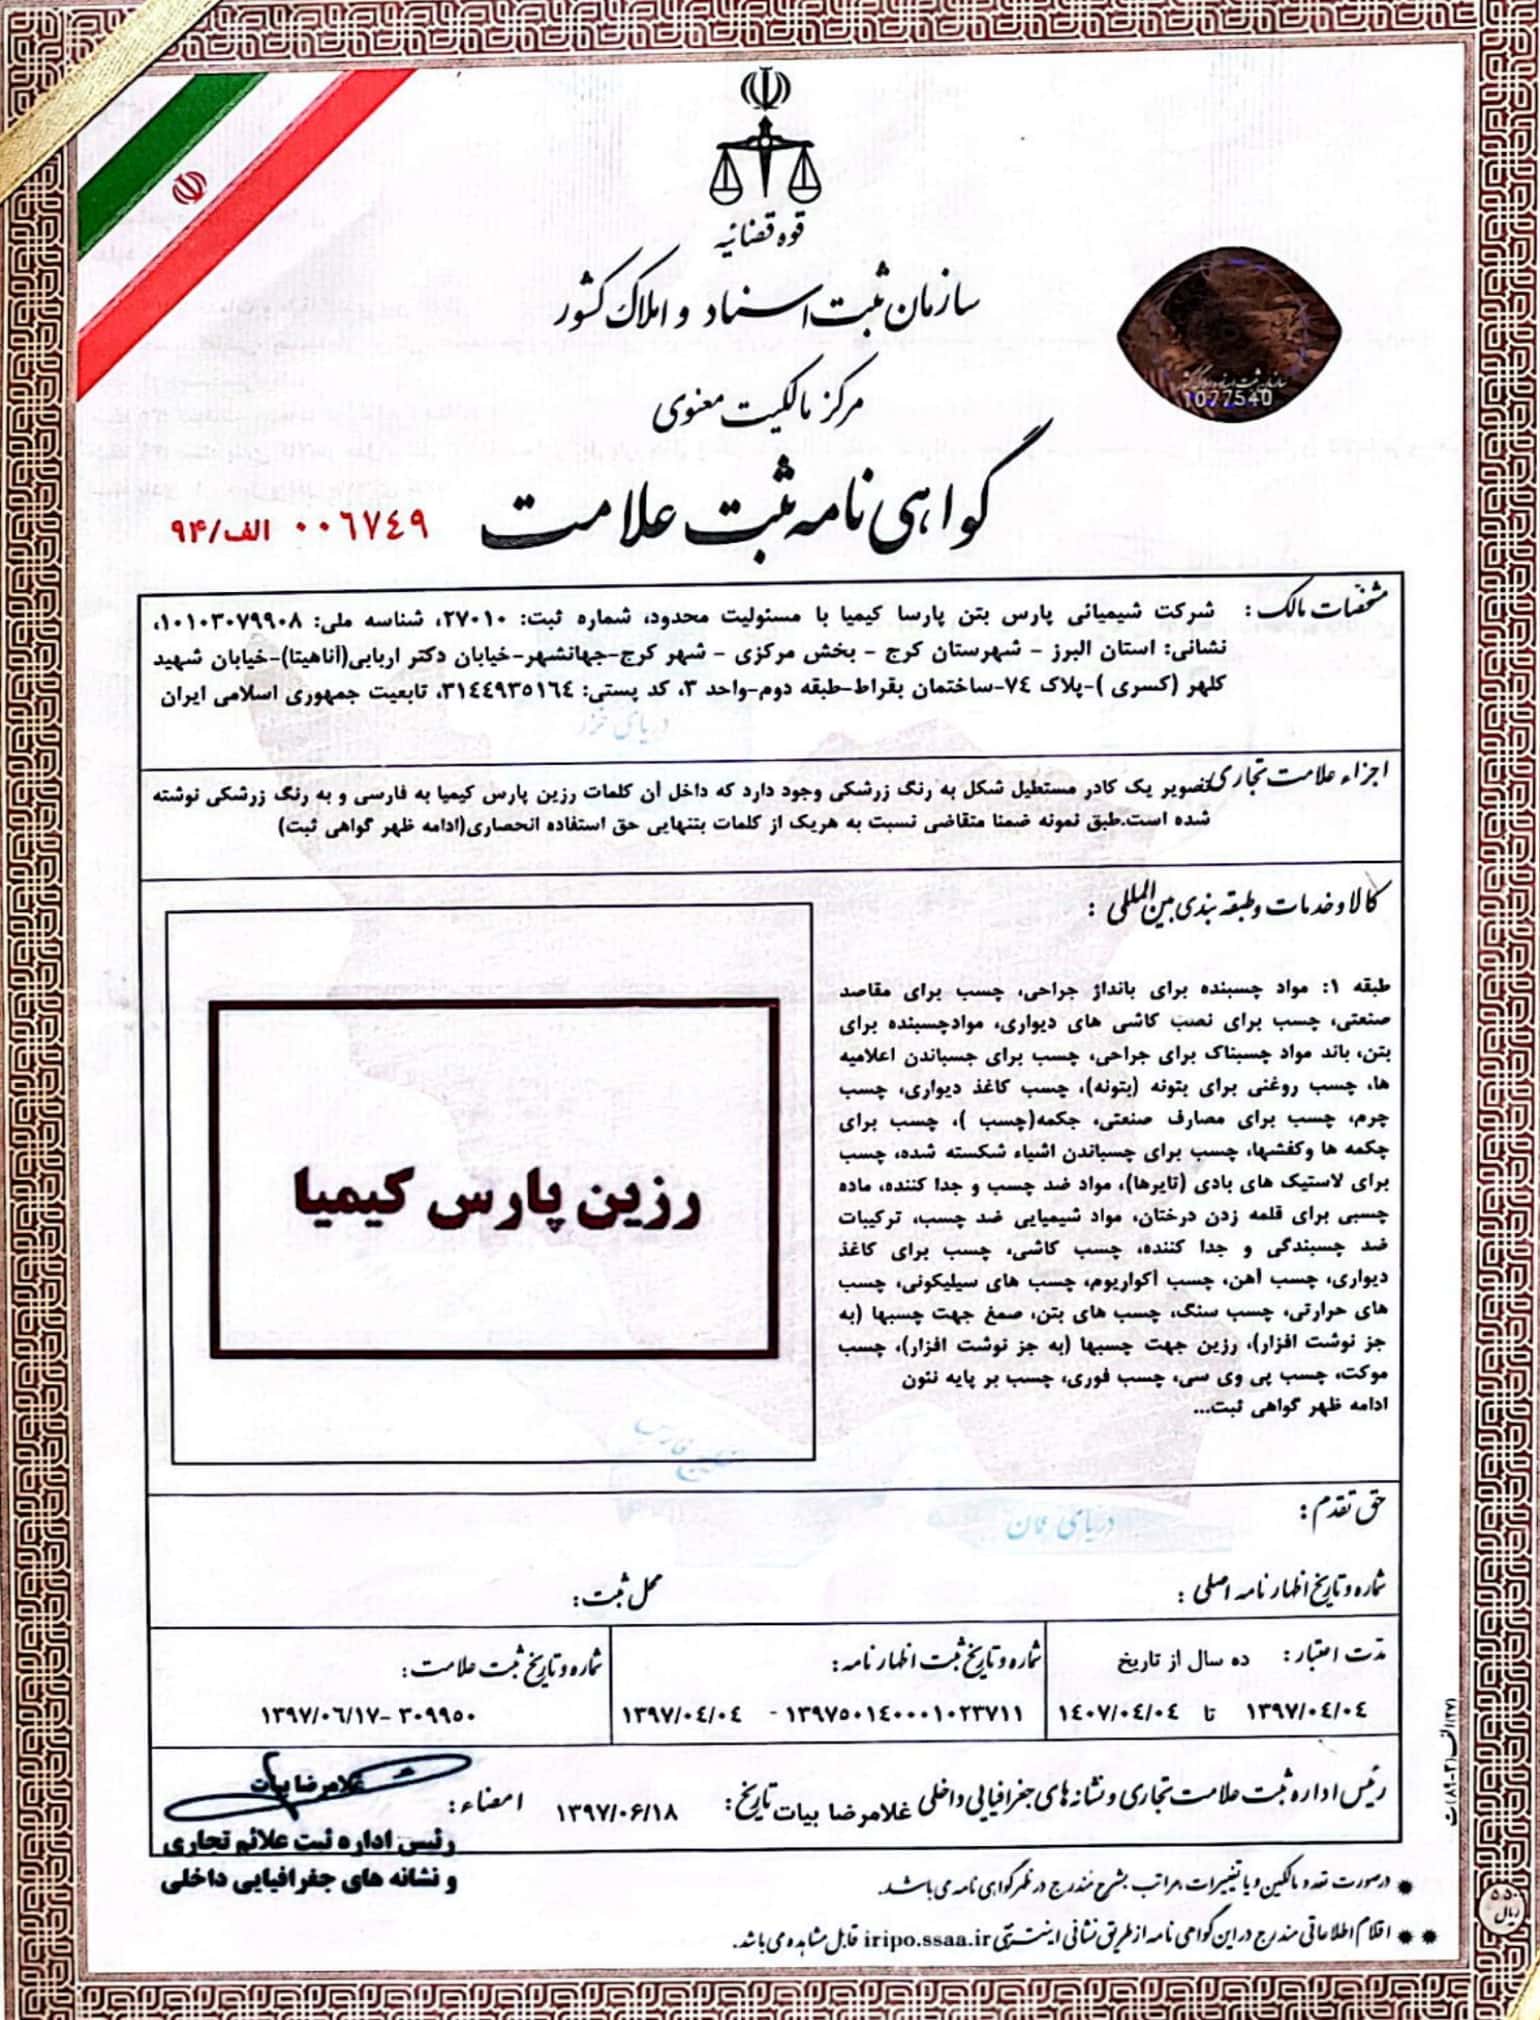 قوه قضائیه
سازمان ثبت اسناد و املاک کشور
1077540
مرکز مالکیت معنوی
گواهی نامه ثبت علامت
۰۰۶۷۴۹ الف/۹۴
مشخصات مالک: شرکت شیمیائی پارس بتن پارسا کیمیا با مسئولیت محدود، شماره ثبت: ۲۷۰۱۰، شناسه ملی: ۱۰۱۰۳۰۷۹۹۰۸،
نشانی: استان البرز - شهرستان کرج - بخش مرکزی - شهر کرج-جهانشهر-خیابان دکتر اربابی(آناهیتا)-خیابان شهید
کلهر (کسری )-پلاک ۷٤-ساختمان بقراط-طبقه دوم-واحد ۳، کد پستی: ۳۱٤٤۹۳٥۱٦٤، تابعیت جمهوری اسلامی ایران
اجزاء علامت تجاری: تصویر یک کادر مستطیل شکل به رنگ زرشکی وجود دارد که داخل آن کلمات رزین پارس کیمیا به فارسی و به رنگ زرشکی نوشته
شده است.طبق نمونه ضمنا متقاضی نسبت به هریک از کلمات بتنهایی حق استفاده انحصاری(ادامه ظهر گواهی ثبت)
کالا و خدمات و طبقه بندی بین المللی:
طبقه ۱: مواد چسبنده برای بانداژ جراحی، چسب برای مقاصد
صنعتی، چسب برای نصب کاشی های دیواری، موادچسبنده برای
بتن، باند مواد چسبناک برای جراحی، چسب برای جسباندن اعلامیه
ها، چسب روغنی برای بتونه (بتونه)، چسب کاغذ دیواری، چسب
چرم، چسب برای مصارف صنعتی، جکمه(چسب )، چسب برای
چکمه ها وکفشها، چسب برای چسباندن اشیاء شکسته شده، چسب
برای لاستیک های بادی (تایرها)، مواد ضد چسب و جدا کننده، ماده
چسبی برای قلمه زدن درختان، مواد شیمیایی ضد چسب، ترکیبات
ضد چسبندگی و جدا کننده، چسب کاشی، چسب برای کاغذ
دیواری، چسب آهن، چسب آکواریوم، چسب های سیلیکونی، چسب
های حرارتی، چسب سنگ، چسب های بتن، صمغ جهت چسبها (به
جز نوشت افزار)، رزین جهت چسبها (به جز نوشت افزار)، چسب
موکت، چسب پی وی سی، چسب فوری، چسب بر پایه نئون
ادامه ظهر گواهی ثبت...
رزین پارس کیمیا
دریای خزر
خلیج فارس
دریای عمان
حق تقدم:
شماره و تاریخ اظهارنامه اصلی:
محل ثبت:
مدت اعتبار: ده سال از تاریخ
۱۳۹۷/۰٤/۰٤ تا ۱٤۰۷/۰٤/۰٤
شماره و تاریخ ثبت اظهارنامه:
۱۳۹۷٥۰۱٤۰۰۰۱۰۲۳۷۱۱ - ۱۳۹۷/۰٤/۰٤
شماره و تاریخ ثبت علامت:
۳۰۹۹٥۰ -۱۳۹۷/۰٦/۱۷
رئیس اداره ثبت علامت تجاری و نشانه های جغرافیایی داخلی غلامرضا بیات تاریخ: ۱۳۹۷/۰۶/۱۸ امضاء:
غلامرضا بیات
رئیس اداره ثبت علائم تجاری
و نشانه های جغرافیایی داخلی
درصورت تعدد مالکین و یا تغییرات، مراتب بشرح مندرج در ظهر گواهی نامه می باشد.
اقلام اطلاعاتی مندرج در این گواهی نامه از طریق نشانی اینترنتی iripo.ssaa.ir قابل مشاهده می باشد.
ریال